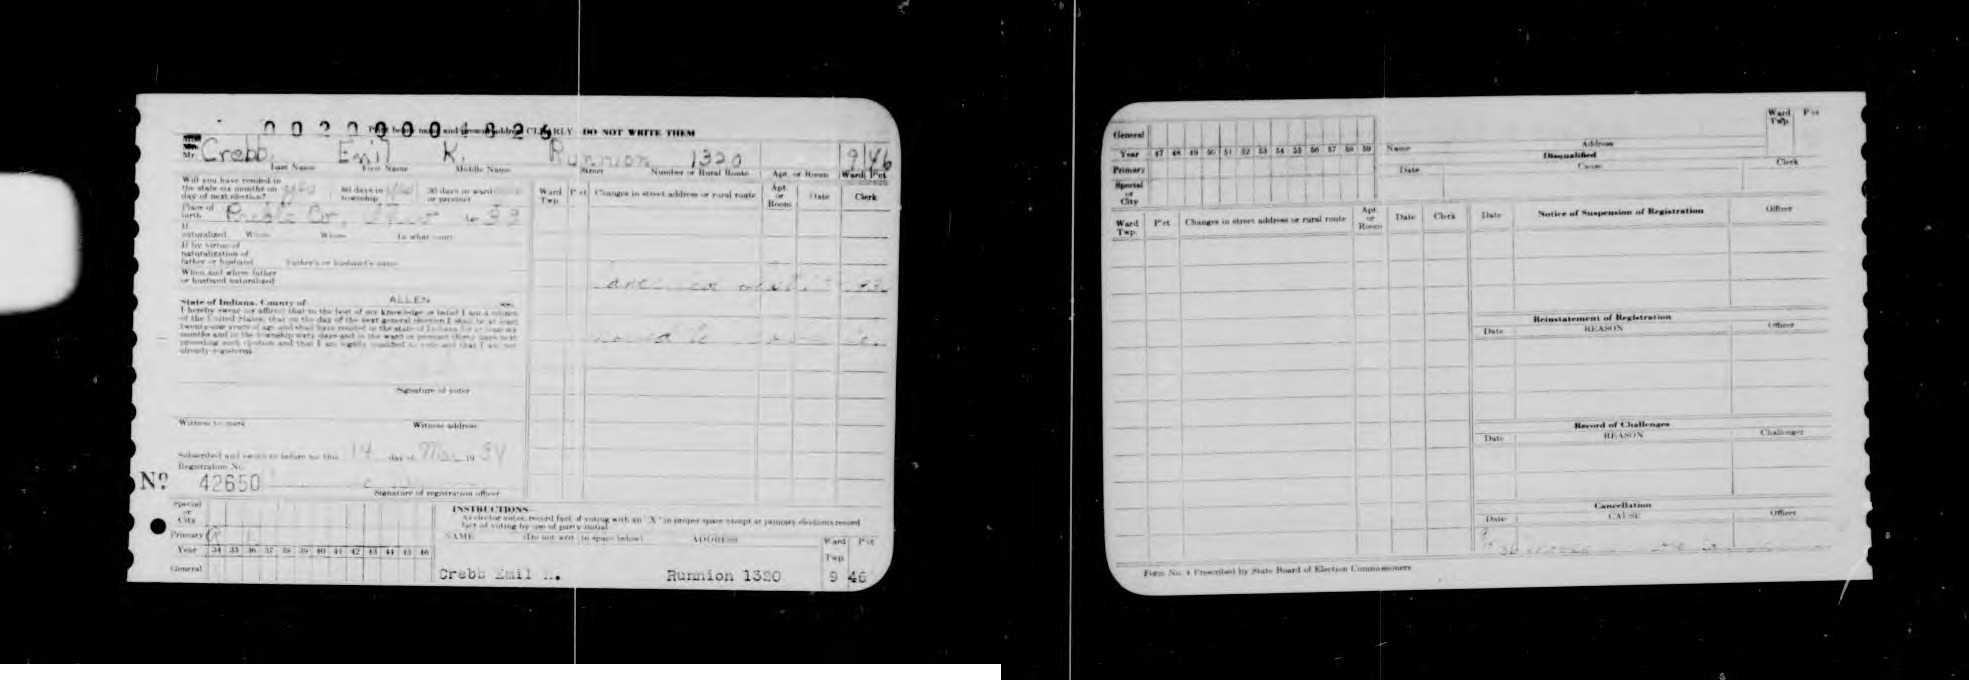 0020004826
Print below name and present address CLEARLY - DO NOT WRITE THEM
Mr. Crebb Emil K. Runnion 1320 9 46
Last Name First Name Middle Name Street Number or Rural Route Apt. or Room Ward P'ct
Will you have resided in
the state six months on yes 60 days in yes 30 days in ward
day of next election? township or precinct
Place of
birth Preble Co., Ohio
If
naturalized When Where In what court
If by virtue of
naturalization of
father or husband Father's or husband's name
When and where father
or husband naturalized
State of Indiana, County of ALLEN ss.
I hereby swear (or affirm) that to the best of my knowledge or belief I am a citizen
of the United States, that on the day of the next general election I shall be at least
twenty-one years of age and shall have resided in the state of Indiana for at least six
months and in the township sixty days and in the ward or precinct thirty days next
preceding such election and that I am legally qualified to vote and that I am not
already registered.
Signature of voter
Witness to mark Witness address
Subscribed and sworn to before me this 14 day of Mar 19 34
Registration No.
No 42650
Signature of registration officer
Ward Twp. P'ct Changes in street address or rural route Apt. or Room Date Clerk
Special
or
City
Primary R
Year 34 35 36 37 38 39 40 41 42 43 44 45 46
General
INSTRUCTIONS
As elector votes, record fact of voting with an "X" in proper space except at primary elections record
fact of voting by use of party initial
NAME (Do not write in space below) ADDRESS Ward Twp. P'ct
Crebb Emil K. Runnion 1320 9 46
General
Year 47 48 49 50 51 52 53 54 55 56 57 58 59
Primary
Special
or
City
Name Address Ward Twp. P'ct
Disqualified
Date Cause Clerk
Ward Twp. P'ct Changes in street address or rural route Apt. or Room Date Clerk
Date Notice of Suspension of Registration Officer
Reinstatement of Registration
Date REASON Officer
Record of Challenges
Date REASON Challenger
Cancellation
Date CAUSE Officer
Form No. 4 Prescribed by State Board of Election Commissioners